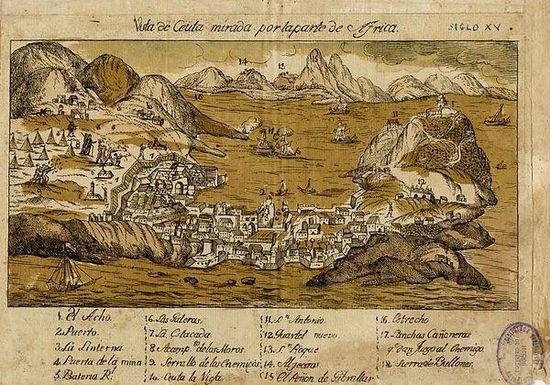 Vista de Ceuta mirada por la parte de Africa.
SIGLO XV
1. El Acho.
2. Puerto.
3. La Linterna.
4. Puerta de la mina
5. Bateria R.
6. Las Galeras.
7. La Estacada.
8. Acampto. de los Moros.
9. Serrallo de los Enemigos
10. Ceuta la Vieja
11. Sn. Antonio.
12. Quartel nuevo.
13. Sn. Roque
14. Aljeciras
15. El Peñon de Gibraltar
16. Estrecho.
17. Lanchas Cañoneras
q. dan fuego al Enemigo.
18. Sierra de Bullones.